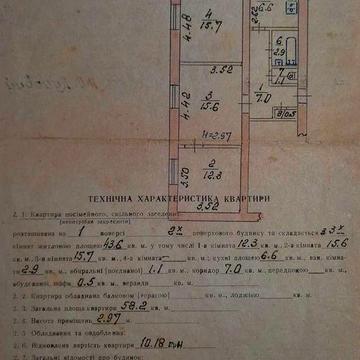 4
15.7
4.48
2.62
6.6
6
2.9
7
1.1
3.52
1
7.0
3
15.6
4.42
8/0.5
h=2.97
2
12.3
3.50
3.52
ТЕХНІЧНА ХАРАКТЕРИСТИКА КВАРТИРИ
2. 1. Квартира посімейного, спільного заселення
(непотрібне закреслити)
розташована на 1 поверсі 2х поверхового будинку та складається з 3х
кімнат житловою площею 43.6 кв. м, у тому числі 1-а кімната 12.3 кв. м, 2-а кімната 15.6
кв. м, 3-я кімната 15.7 кв. м, 4-а кімната кв. м; кухні площею 6.6 кв. м, ван. кімна-
2.9 кв. м, вбиральні (поєднаної) 1.1 кв. м, коридор 7.0 кв. м, передпокою кв. м,
вбудовані шафи 0.5 кв. м, веранди кв. м.
2. 2. Квартира обладнана балконом (терасою) кв. м, лоджією кв. м.
2. 3. Загальна площа квартири 58.2 кв. м.
2. 4. Висота приміщень 2.97 м.
2. 5. Обладнання та оздоблення:
2. 6. Відновлена вартість квартири 10.18 тин
2. 7. Загальні відомості про будинок: